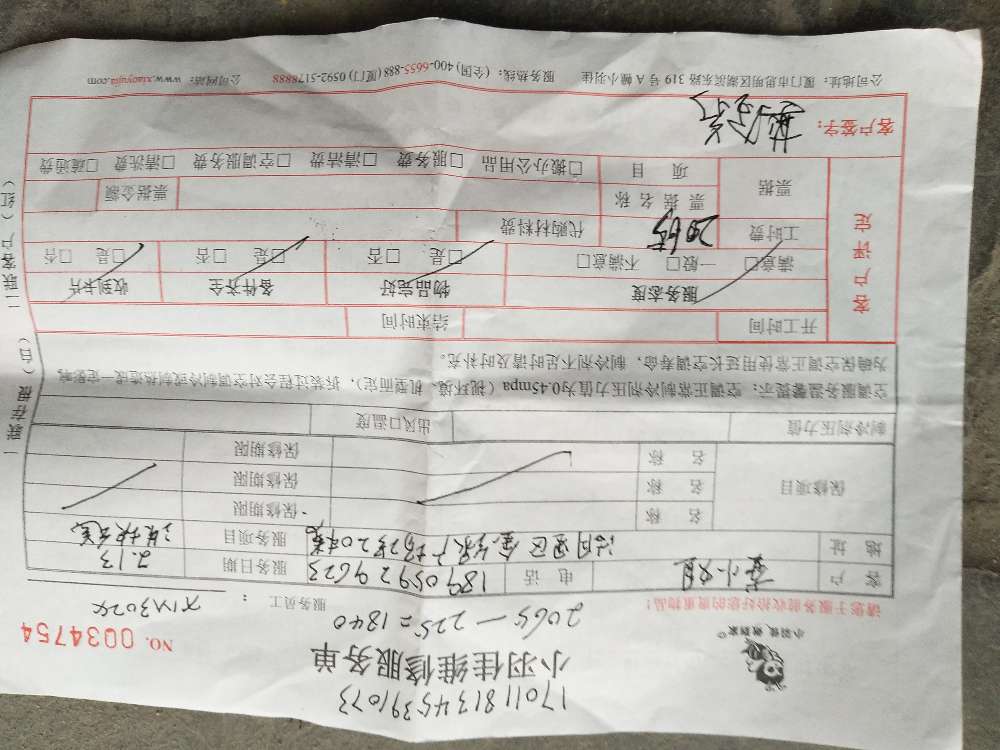 1701181345391073
小羽佳维修服务单
小羽佳,俩到家
NO. 0034754
2065-225=1840
请您于服务前收拾好您的贵重物品!
服务员工:
客 户
电 话 18905929623
服务日期 2.13
地 址
服务项目
保修项目
名 称
保修期限
名 称
保修期限
名 称
保修期限
制冷剂压力值
出风口温度
空调服务温馨提示:空调正常制冷剂压力值为0.45mpa(视环境、机型而定),拆装过程会对空调制冷或制热造成一定影响
为确保空调正常使用延长空调寿命,制冷剂不足时请及时补充。
开工时间
结束时间
客户评定
服务态度
物品完好
备件齐全
收到卡片
满意□ 一般□ 不满意□
□是 □否
□是 □否
□是 □否
工时费 2065
代购材料费
票据
票据名称
票据金额
项 目
□搬办公用品 □服务费 □清洁费 □空调服务费 □清洗费 □疏通费
客户签字:
公司地址:厦门市思明区湖滨东路319号A幢小羽佳 服务热线:(全国)400-6655-888(厦门)0592-5178888 公司网站:www.xiaoyujia.com
一联存根(白) 二联客户(红)